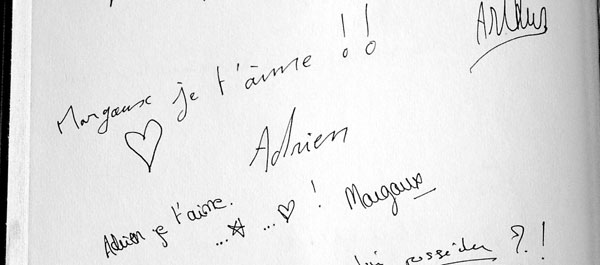 Arthur
Margaux je t'aime !!
Adrien
Adrien je t'aime.
... ... ! Margaux
?!